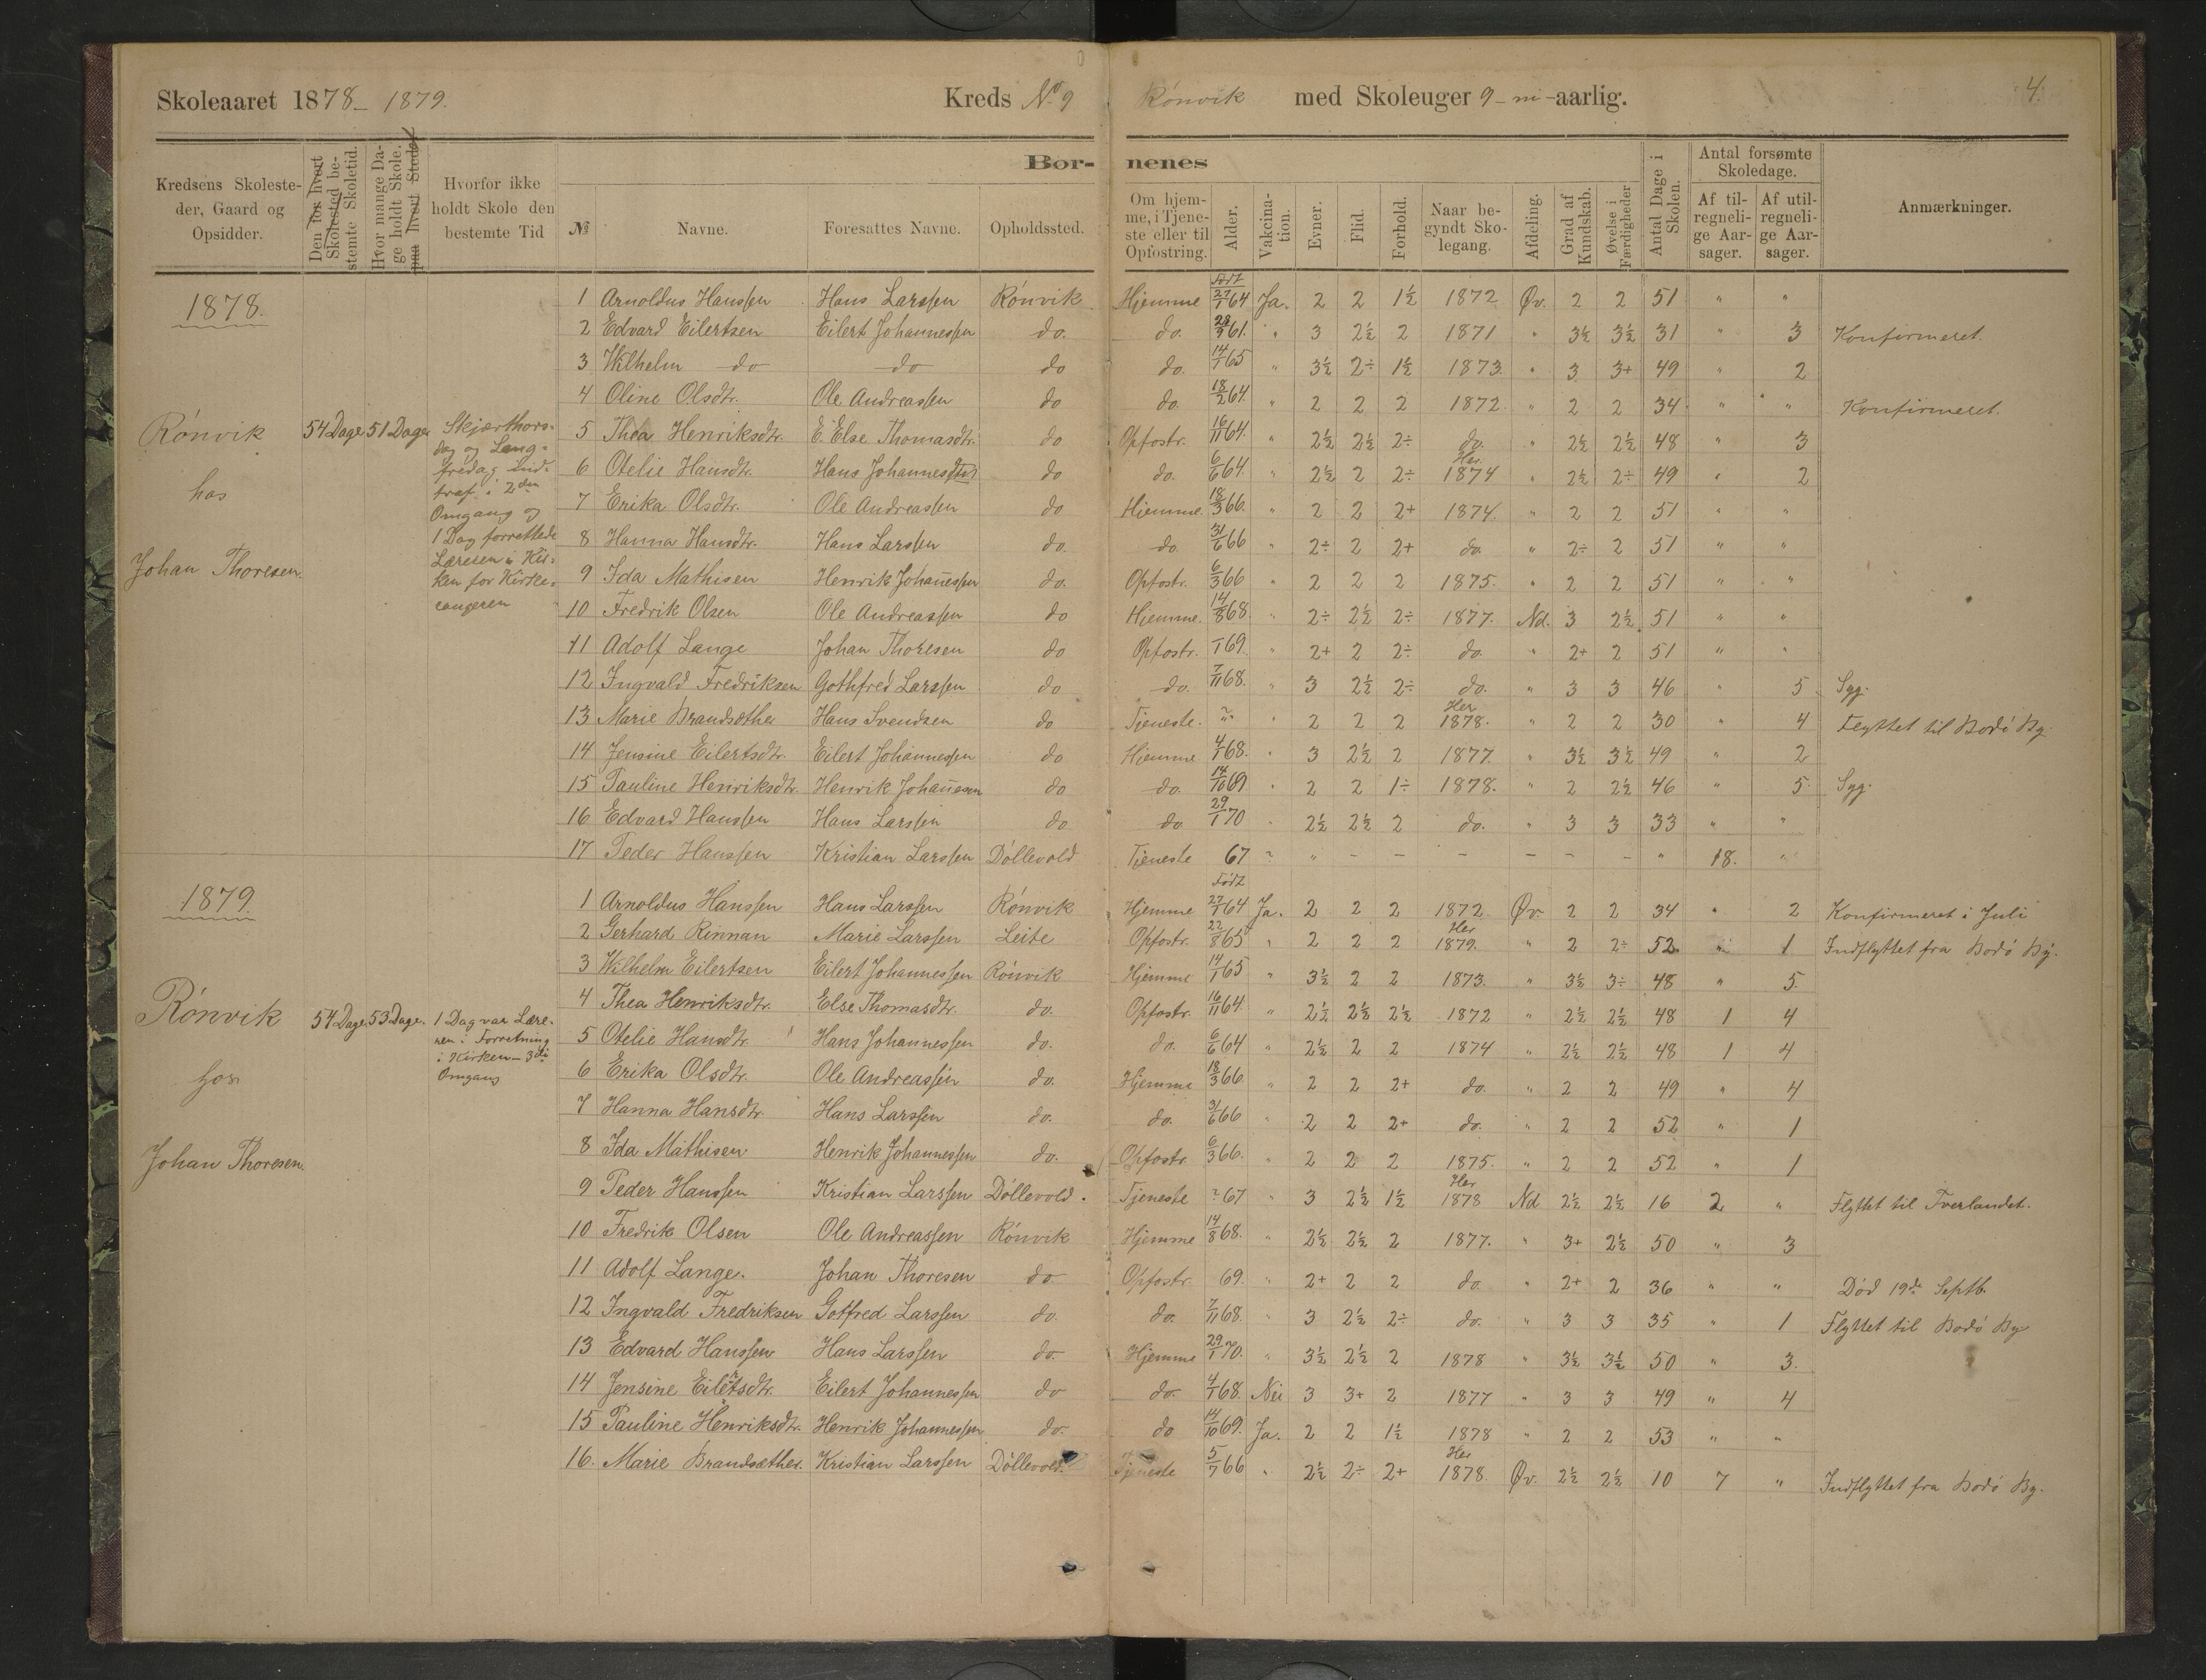 Skoleaaret 1878_ 1879. Kreds No 9 Rönvik med Skoleuger 9-ni-aarlig. 4.
Bør-nenes
Kredsens Skolesteder, Gaard og Opsidder.
Den for hvert Skolested bestemte Skoletid.
Hvor mange Dage holdt Skole. paa hvert Sted
Hvorfor ikke holdt Skole den bestemte Tid
№ Navne. Foresattes Navne. Opholdssted. Om hjemme, i Tjeneste eller til Opfostring. Alder. Vakcination. Evner. Flid. Forhold. Naar begyndt Skolegang. Afdeling. Grad af Kundskab. Øvelse i Færdigheder Antal Dage i Skolen. Antal forsømte Skoledage. Af tilregnelige Aarsager. Af utilregnelige Aarsager. Anmærkninger.
1878.
Rönvik
hos
Johan Thoresen.
54 Dage 51 Dage
Skjærthors-
dag og Lang-
fredag ind-
traf i 2den
Omgang og
1 Dag forrettede
Læreren i Kir-
ken for Kirke-
sangeren
Født
1 Arnoldus Hanssen Hans Larssen Rönvik Hjemme 27/1 64 Ja. 2 2 1½ 1872 Øv. 2 2 51 " "
2 Edvard Eilertsen Eilert Johannessen do. do. 28/3 61. " 3 2½ 2 1871 " 3½ 3½ 31 " 3 Konfirmeret.
3 Wilhelm do do do do. 14/1 65 " 3½ 2÷ 1½ 1873. " 3 3+ 49 " 2
4 Oline Olsdtr. Ole Andreassen do do. 18/2 64. " 2 2 2 1872. " 2 2 34 " " Konfirmeret.
5 Thea Henriksdtr. E. Else Thomasdtr. do Opfostr. 16/11 64. " 2½ 2½ 2÷ do. " 2½ 2½ 48 " 3
6 Otelie Hansdtr. Hans Johannes do do. 6/6 64. " 2½ 2 2÷ Her 1874 " 2½ 2÷ 49 " 2
7 Erika Olsdtr. Ole Andreassen do Hjemme. 18/3 66. " 2 2 2+ 1874. " 2 2 51 " "
8 Hanna Hansdtr. Hans Larssen do. do 31/6 66 " 2÷ 2 2+ do. " 2÷ 2 51 " "
9 Ida Mathisen Henrik Johan̄essen do. Opfostr. 6/3 66 " 2 2 2 1875. " 2 2 51 " "
10 Fredrik Olsen Ole Andreassen do Hjemme. 14/8 68. " 2÷ 2½ 2÷ 1877. Nd. 3 2½ 51 " "
11 Adolf Lange Johan Thoresen do Opfostr. 69. " 2+ 2 2÷ do. " 2+ 2 51 " "
12 Ingvald Fredriksen Gothfred Larssen do do. 7/11 68. " 3 2½ 2÷ do. " 3 3 46 " 5 Syg.
13 Marie Brandsæther Hans Svendsen do Tjeneste. " 2 2 2 Her 1878. " 2 2 30 " 4 Flyttet til Bodö By.
14 Jensine Eilertsdtr. Eilert Johannessen do Hjemme 4/1 68. " 3 2½ 2 1877. " 3½ 3½ 49 " 2
15 Pauline Henriksdtr. Henrik Johan̄esen do do. 14/10 69 " 2 2 1÷ 1878. " 2 2½ 46 " 5 Syg.
16 Edvard Hanssen Hans Larssen do do 29/1 70 " 2½ 2½ 2 do. " 3 3 33 " "
17 Peder Hanssen Kristian Larssen Döllevold Tjeneste 67 ? " - - - - - - " 18. "
1879.
Rönvik
hos
Johan Thoresen.
54 Dage. 53 Dage.
1 Dag var Lære-
ren i Forretning
i Kirken - 3die
Omgang
Født
1 Arnoldus Hanssen Hans Larssen Rönvik Hjemme 27/1 64 Ja. 2 2 2 1872 Øv. 2 2 34 " 2 Konfirmeret i Juli
2 Gerhard Rinnan Marie Larssen Leite Opfostr. 22/8 65 " 2 2 2 Her 1879. " 2 2÷ 52. " 1 Indflyttet fra Bodö By.
3 Wilhelm Eilertsen Eilert Johannessen Rönvik Hjemme 14/1 65 " 3½ 2 2 1873. " 3½ 3÷ 48 " 5.
4 Thea Henriksdtr. Else Thomasdtr. do. Opfostr. 16/11 64 " 2½ 2½ 2½ 1872 " 2½ 2½ 48 1 4
5 Otelie Hansdtr. Hans Johannessen do. do. 6/6 64 " 2½ 2 2 1874 " 2½ 2½ 48 1 4
6 Erika Olsdtr. Ole Andreassen do. Hjemme 18/3 66 " 2 2 2+ do. " 2 2 49 " 4
7 Hanna Hansdtr. Hans Larssen do. do. 31/6 66 " 2 2 2+ do. " 2 2 52 " 1
8 Ida Mathisen Henrik Johannessen do. Opfostr. 6/3 66. " 2 2 2 1875. " 2 2 52 " 1
9 Peder Hanssen Kristian Larssen Döllevold. Tjeneste ? 67 " 3 2½ 1½ Her 1878 Nd 2½ 2½ 16 2 " Flyttet til Tverlandet.
10 Fredrik Olsen Ole Andreassen Rönvik Hjemme 14/8 68. " 2½ 2½ 2 1877. " 3+ 2½ 50 " 3
11 Adolf Lange. Johan Thoresen do Opfostr. 69. " 2+ 2 2 do. " 2+ 2 36 " " Död 19de Septb.
12 Ingvald Fredriksen Gotfred Larssen do. do. 7/11 68. " 3 2½ 2÷ do. " 3 3 35 " 1 Flyttet til Bodö By
13 Edvard Hanssen Hans Larssen do. Hjemme 29/1 70. " 3½ 2½ 2 1878 " 3½ 3½ 50 " 3.
14 Jensine Eilertsdtr. Eilert Johannessen do do. 4/1 68. Nei 3 3+ 2 1877 " 3 3 49 " 4
15 Pauline Henriksdtr. Henrik Johannessen do. do 14/10 69. Ja. 2 2 1½ 1878 " 2 2 53 " "
16. Marie Brandsæther. Kristian Larssen Döllevold. Tjeneste 5/7 66 " 2½ 2÷ 2+ Her 1878. Øv. 2½ 2½ 10 7 " Indflyttet fra Bodö By.